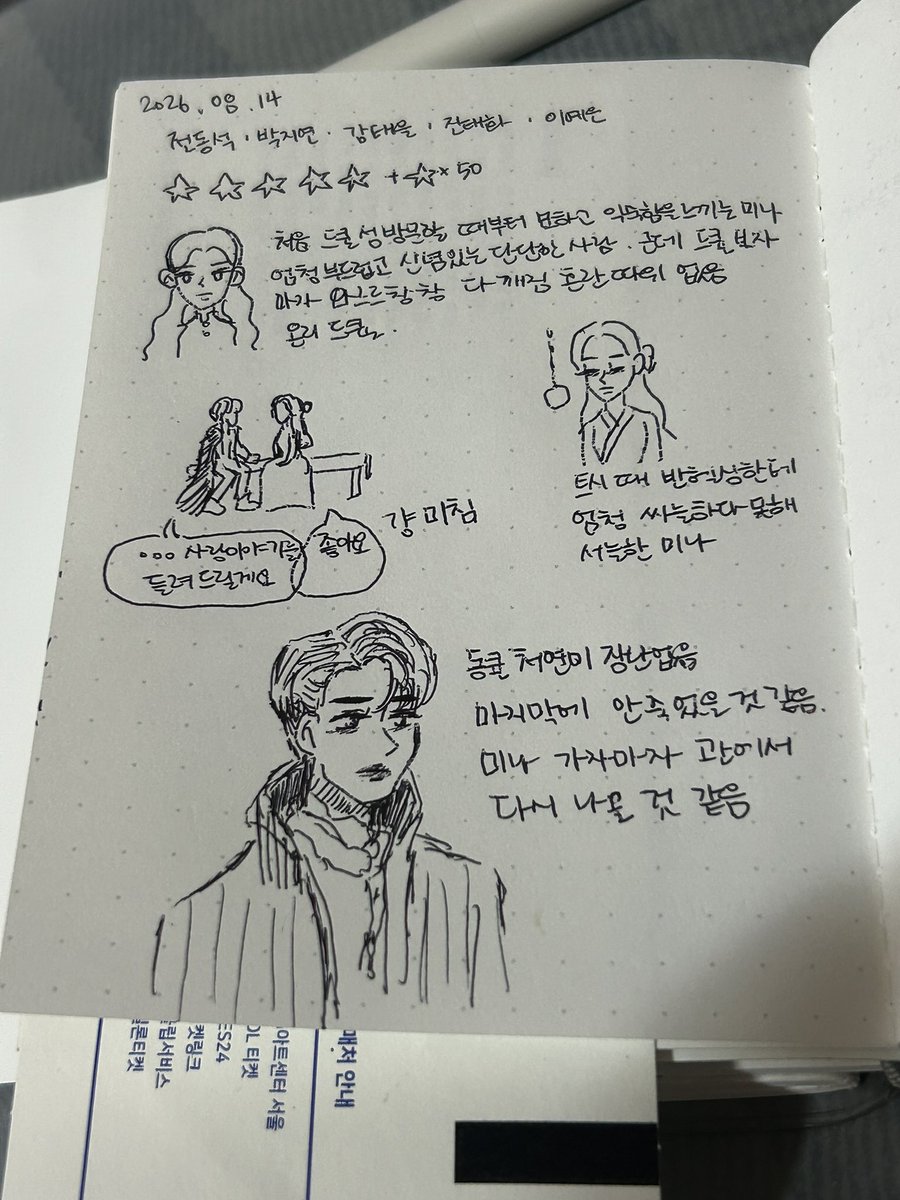 2026.08.14
전동석 · 박지연 · 김태을 · 진태화 · 이예은
☆☆☆☆☆ +☆×50
처음 드큘성 방문할 때부터 묘하고 익숙함을 느끼는 미나
엄청 부드럽고 신념있는 단단한 사람. 근데 드큘 보자
마자 와그르 다 깨짐 혼란따위 없음
온리 드큘.
트시 때 반허상한테
엄청 싸늘하다 못해
서늘한 미나
걍 미침
... 사랑이야기를
들려 드릴게요
좋아요
동큘 처연미 장난없음
마지막에 안죽었을것같음.
미나 가자마자 관에서
다시 나올 것 같음
매처 안내
아트센터 서울
OL 티켓
ES24
켓링크
클럽서비스
멜론티켓